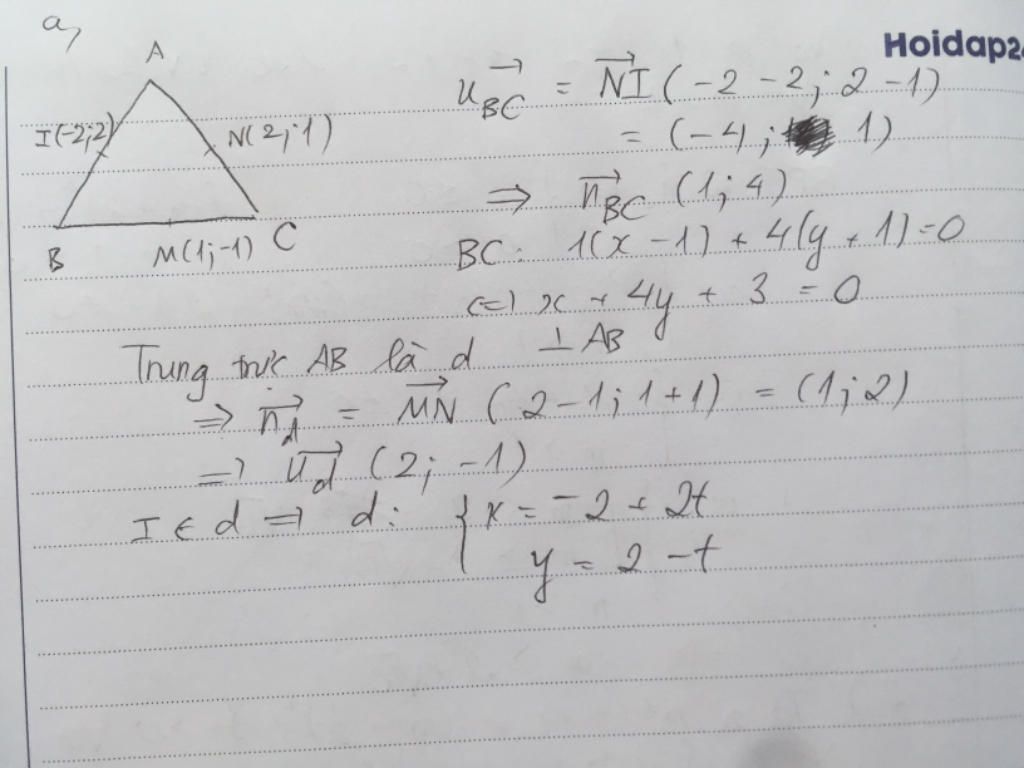 a,
Hoidap2
A
I(-2;2)
N(2;1)
B
M(1;-1)
C
$\overrightarrow{u_{BC}}$ = $\overrightarrow{NI}$ (-2-2; 2-1)
= (-4; 1)
⇒ $\overrightarrow{n_{BC}}$ (1;4)
BC: 1(x-1) + 4(y+1)=0
⇔ x + 4y + 3 = 0
Trung trực AB là d ⊥ AB
⇒ $\overrightarrow{n_d}$ = $\overrightarrow{MN}$ (2-1; 1+1) = (1;2)
⇒ $\overrightarrow{u_d}$ (2; -1)
I ∈ d ⇒ d: { x = -2 + 2t
y = 2 - t